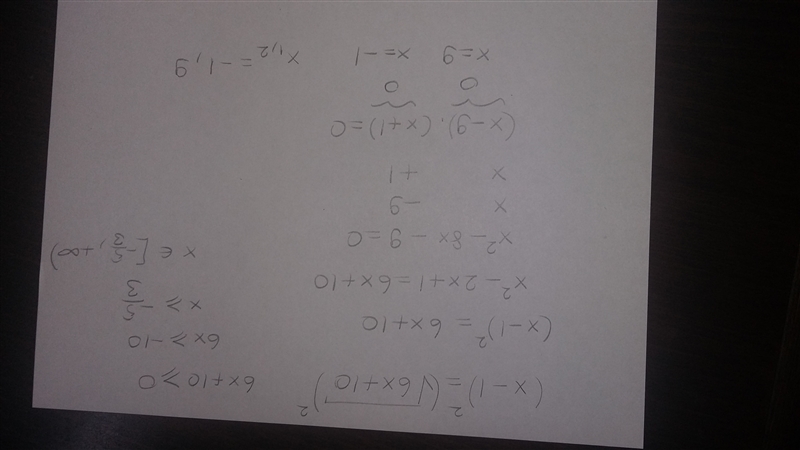 (x-1)² = (√6x+10)²
6x+10 ≥ 0
(x-1)² = 6x+10
6x ≥ -10
x² - 2x + 1 = 6x + 10
x ≥ -5/3
x² - 8x - 9 = 0
x ∈ [-5/3, +∞)
x -9
x +1
(x-9)·(x+1) = 0
0 0
x=9 x=-1 x₁,₂ = -1, 9